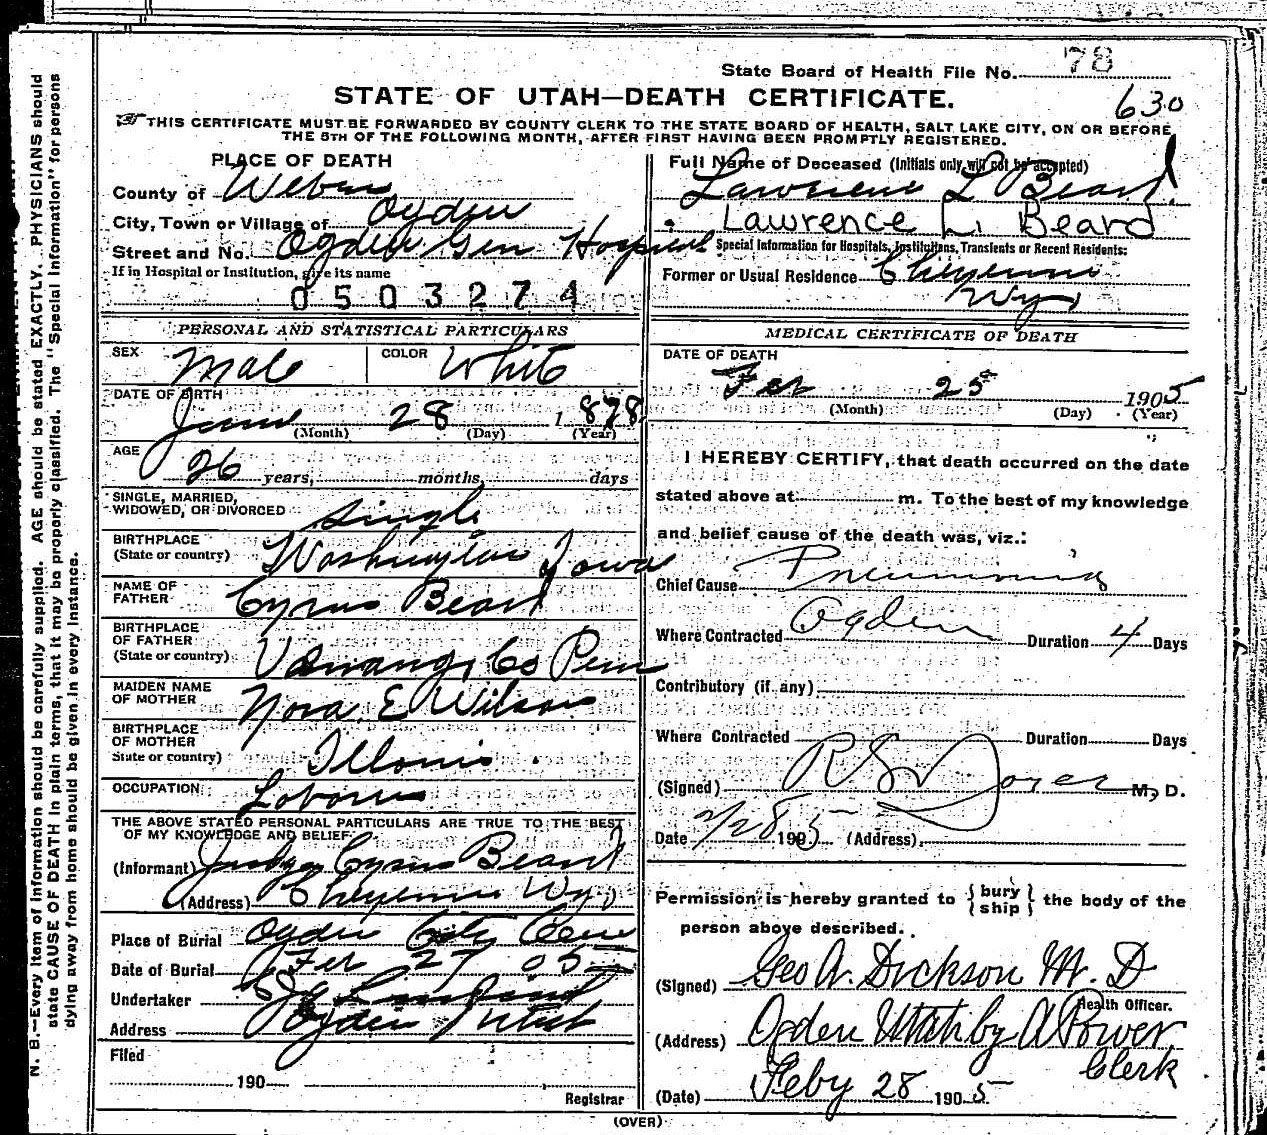 State Board of Health File No. 78
STATE OF UTAH—DEATH CERTIFICATE.
630
THIS CERTIFICATE MUST BE FORWARDED BY COUNTY CLERK TO THE STATE BOARD OF HEALTH, SALT LAKE CITY, ON OR BEFORE
THE 5TH OF THE FOLLOWING MONTH, AFTER FIRST HAVING BEEN PROMPTLY REGISTERED.
PLACE OF DEATH
County of Weber
City, Town or Village of Ogden
Street and No. Ogden Gen Hospital
If in Hospital or Institution, give its name
0503274
Full Name of Deceased (Initials only will not be accepted)
Lawrence L. Beard
Lawrence L. Beard
Special Information for Hospitals, Institutions, Transients or Recent Residents:
Former or Usual Residence Cheyenne
Wyo
PERSONAL AND STATISTICAL PARTICULARS
SEX Male COLOR White
DATE OF BIRTH
June 28 1878
(Month) (Day) (Year)
AGE
26 years, months, days
SINGLE, MARRIED,
WIDOWED, OR DIVORCED Single
BIRTHPLACE
(State or country) Washington Iowa
NAME OF
FATHER Cyrus Beard
BIRTHPLACE
OF FATHER
(State or country) Venango Co Penn
MAIDEN NAME
OF MOTHER Nora E Wilson
BIRTHPLACE
OF MOTHER
State or country) Illonis
OCCUPATION Laborer
THE ABOVE STATED PERSONAL PARTICULARS ARE TRUE TO THE BEST
OF MY KNOWLEDGE AND BELIEF
(Informant) Judge Cyrus Beard
(Address) Cheyenne Wyo
Place of Burial Ogden City Cem
Date of Burial Feb 27 05
Undertaker
Address Ogden Utah
Filed
190
Registrar
MEDICAL CERTIFICATE OF DEATH
DATE OF DEATH
Feb 25th 1905
(Month) (Day) (Year)
I HEREBY CERTIFY, that death occurred on the date
stated above at m. To the best of my knowledge
and belief cause of the death was, viz.:
Chief Cause Pneumonia
Where Contracted Ogden Duration 4 Days
Contributory (if any)
Where Contracted Duration Days
(Signed) M. D.
Date 2/28 1905 (Address)
Permission is hereby granted to { bury ship } the body of the
person above described.
(Signed) Geo A. Dickson M. D
Health Officer.
(Address) Ogden Utah by A Power
Clerk
(Date) Feby 28 1905
(OVER)
N. B.—Every item of information should be carefully supplied. AGE should be stated EXACTLY. PHYSICIANS should
state CAUSE OF DEATH in plain terms, that it may be properly classified. The "Special Information" for persons
dying away from home should be given in every instance.